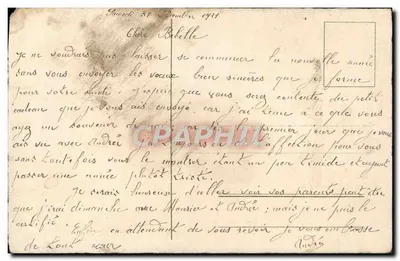 Samedi 30 Décembre 1911
Chère Bebelle
Je ne voudrais pas laisser se commencer la nouvelle année
sans vous envoyer les vœux bien sincères que je forme
pour votre santé. J'espère que vous serez contente du petit
cadeau que je vous ai envoyé car j'ai tenu à ce que vous
ayez un souvenir de premier jour que je vous
ai vu avec André l'affection pour vous
sans toutefois vous le montrer étant un peu timide et
passer une année plutôt triste.
Je serais heureuse d'aller voir vos parents peut être
que j'irai dimanche avec Maurice et André ; mais je ne puis le
certifié. Enfin en attendant de vous revoir je vous embrasse
de tout cœur